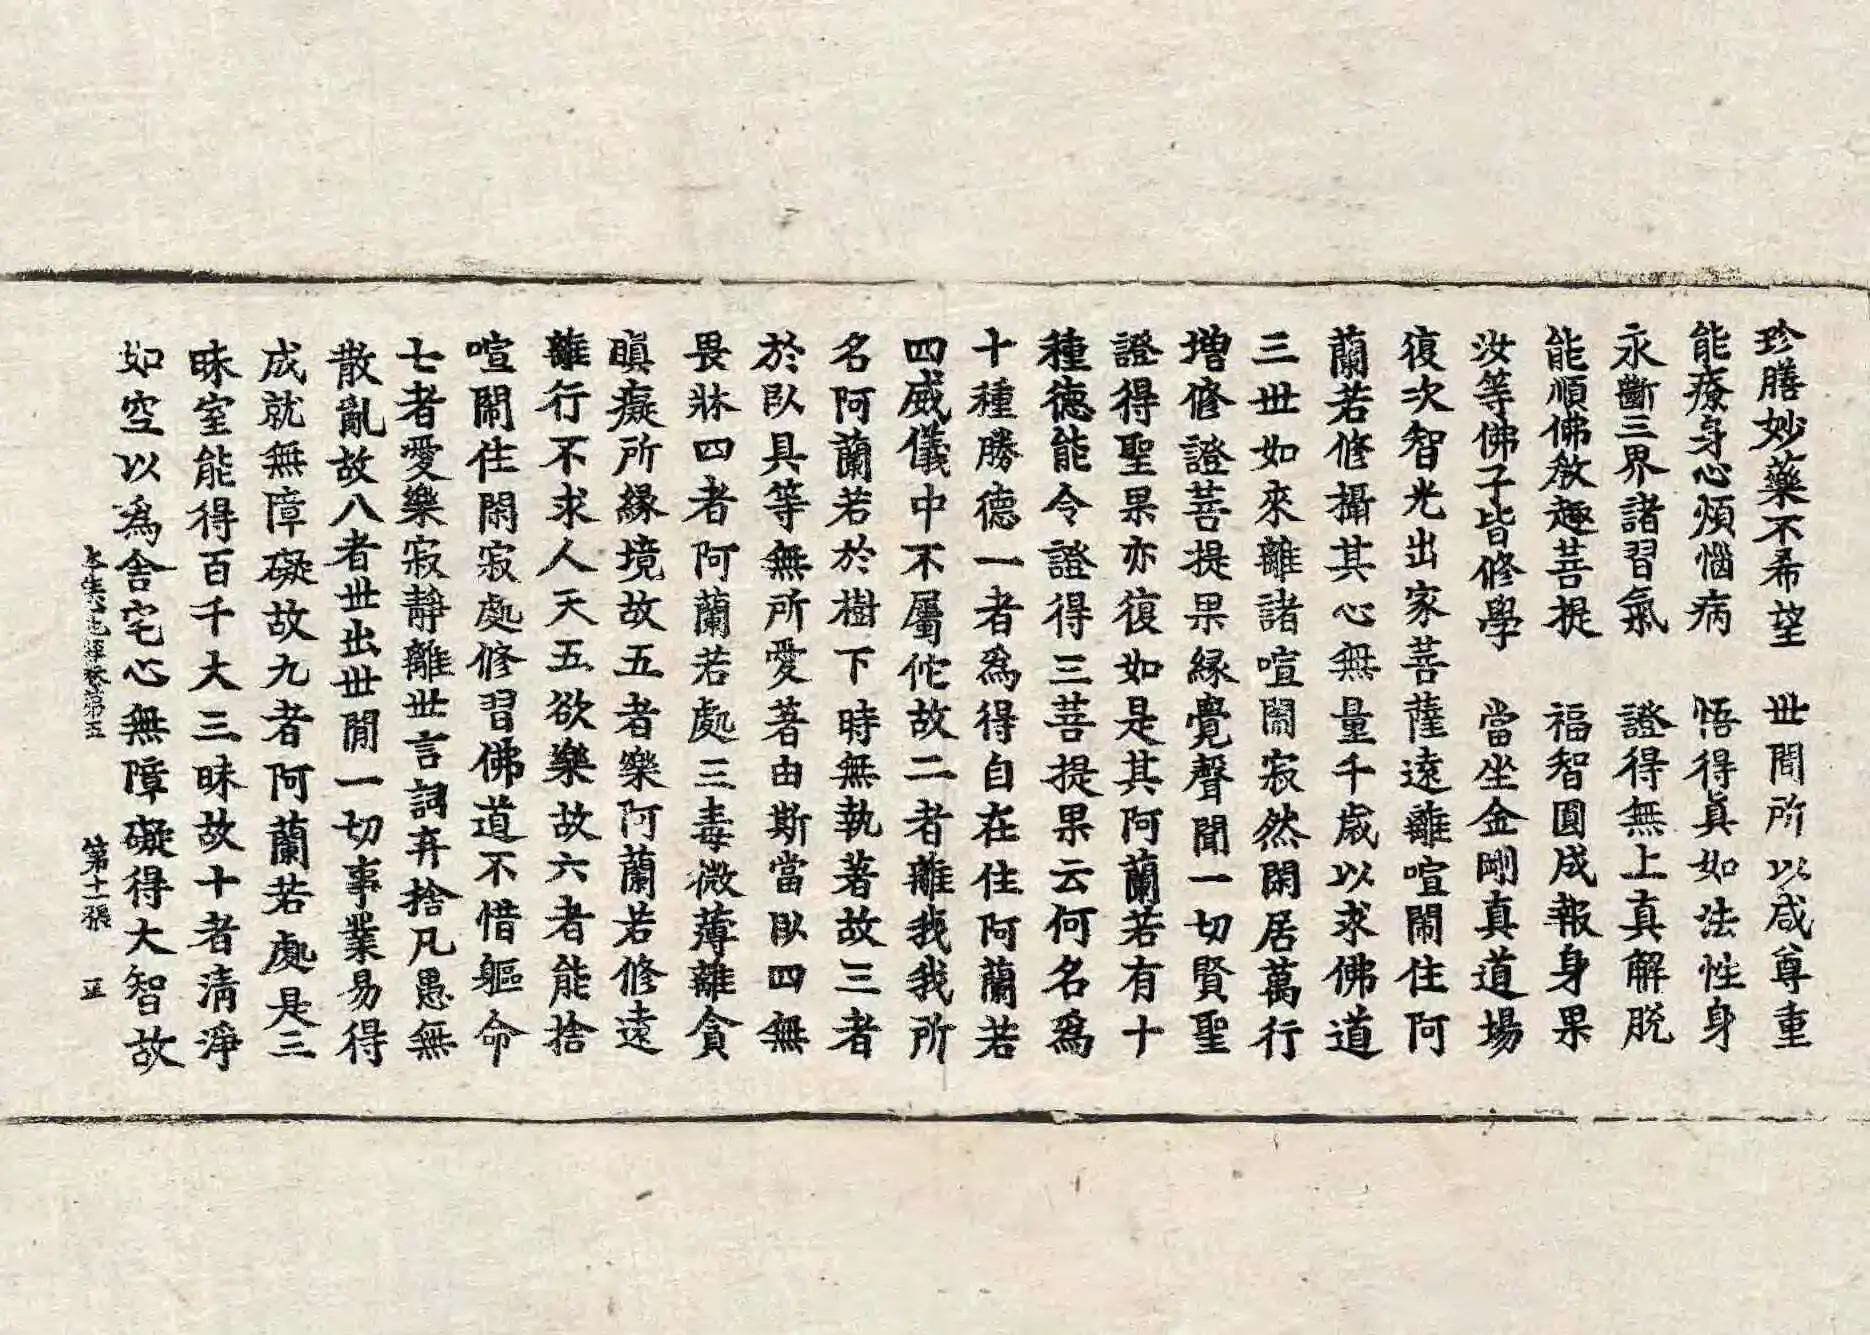 珍膳妙藥不希望　世間所以咸尊重
能療身心煩惱病　悟得真如法性身
永斷三界諸習氣　證得無上真解脫
能順佛教趣菩提　福智圓成報身果
汝等佛子皆修學　當坐金剛真道場
復次智光出家菩薩遠離喧鬧住阿
蘭若修攝其心無量千歲以求佛道
三世如來離諸喧鬧寂然閑居萬行
增修證菩提果緣覺聲聞一切賢聖
證得聖果亦復如是其阿蘭若有十
種德能令證得三菩提果云何名為
十種勝德一者為得自在住阿蘭若
四威儀中不屬佗故二者離我我所
名阿蘭若於樹下時無執著故三者
於臥具等無所愛著由斯當臥四無
畏牀四者阿蘭若處三毒微薄離貪
瞋癡所緣境故五者樂阿蘭若修遠
離行不求人天五欲樂故六者能捨
喧鬧住閑寂處修習佛道不惜軀命
七者愛樂寂靜離世言詞弃捨凡愚無
散亂故八者世出世間一切事業易得
成就無障礙故九者阿蘭若處是三
昧室能得百千大三昧故十者清淨
如空以為舍宅心無障礙得大智故
本生心地經卷第五　第十一張